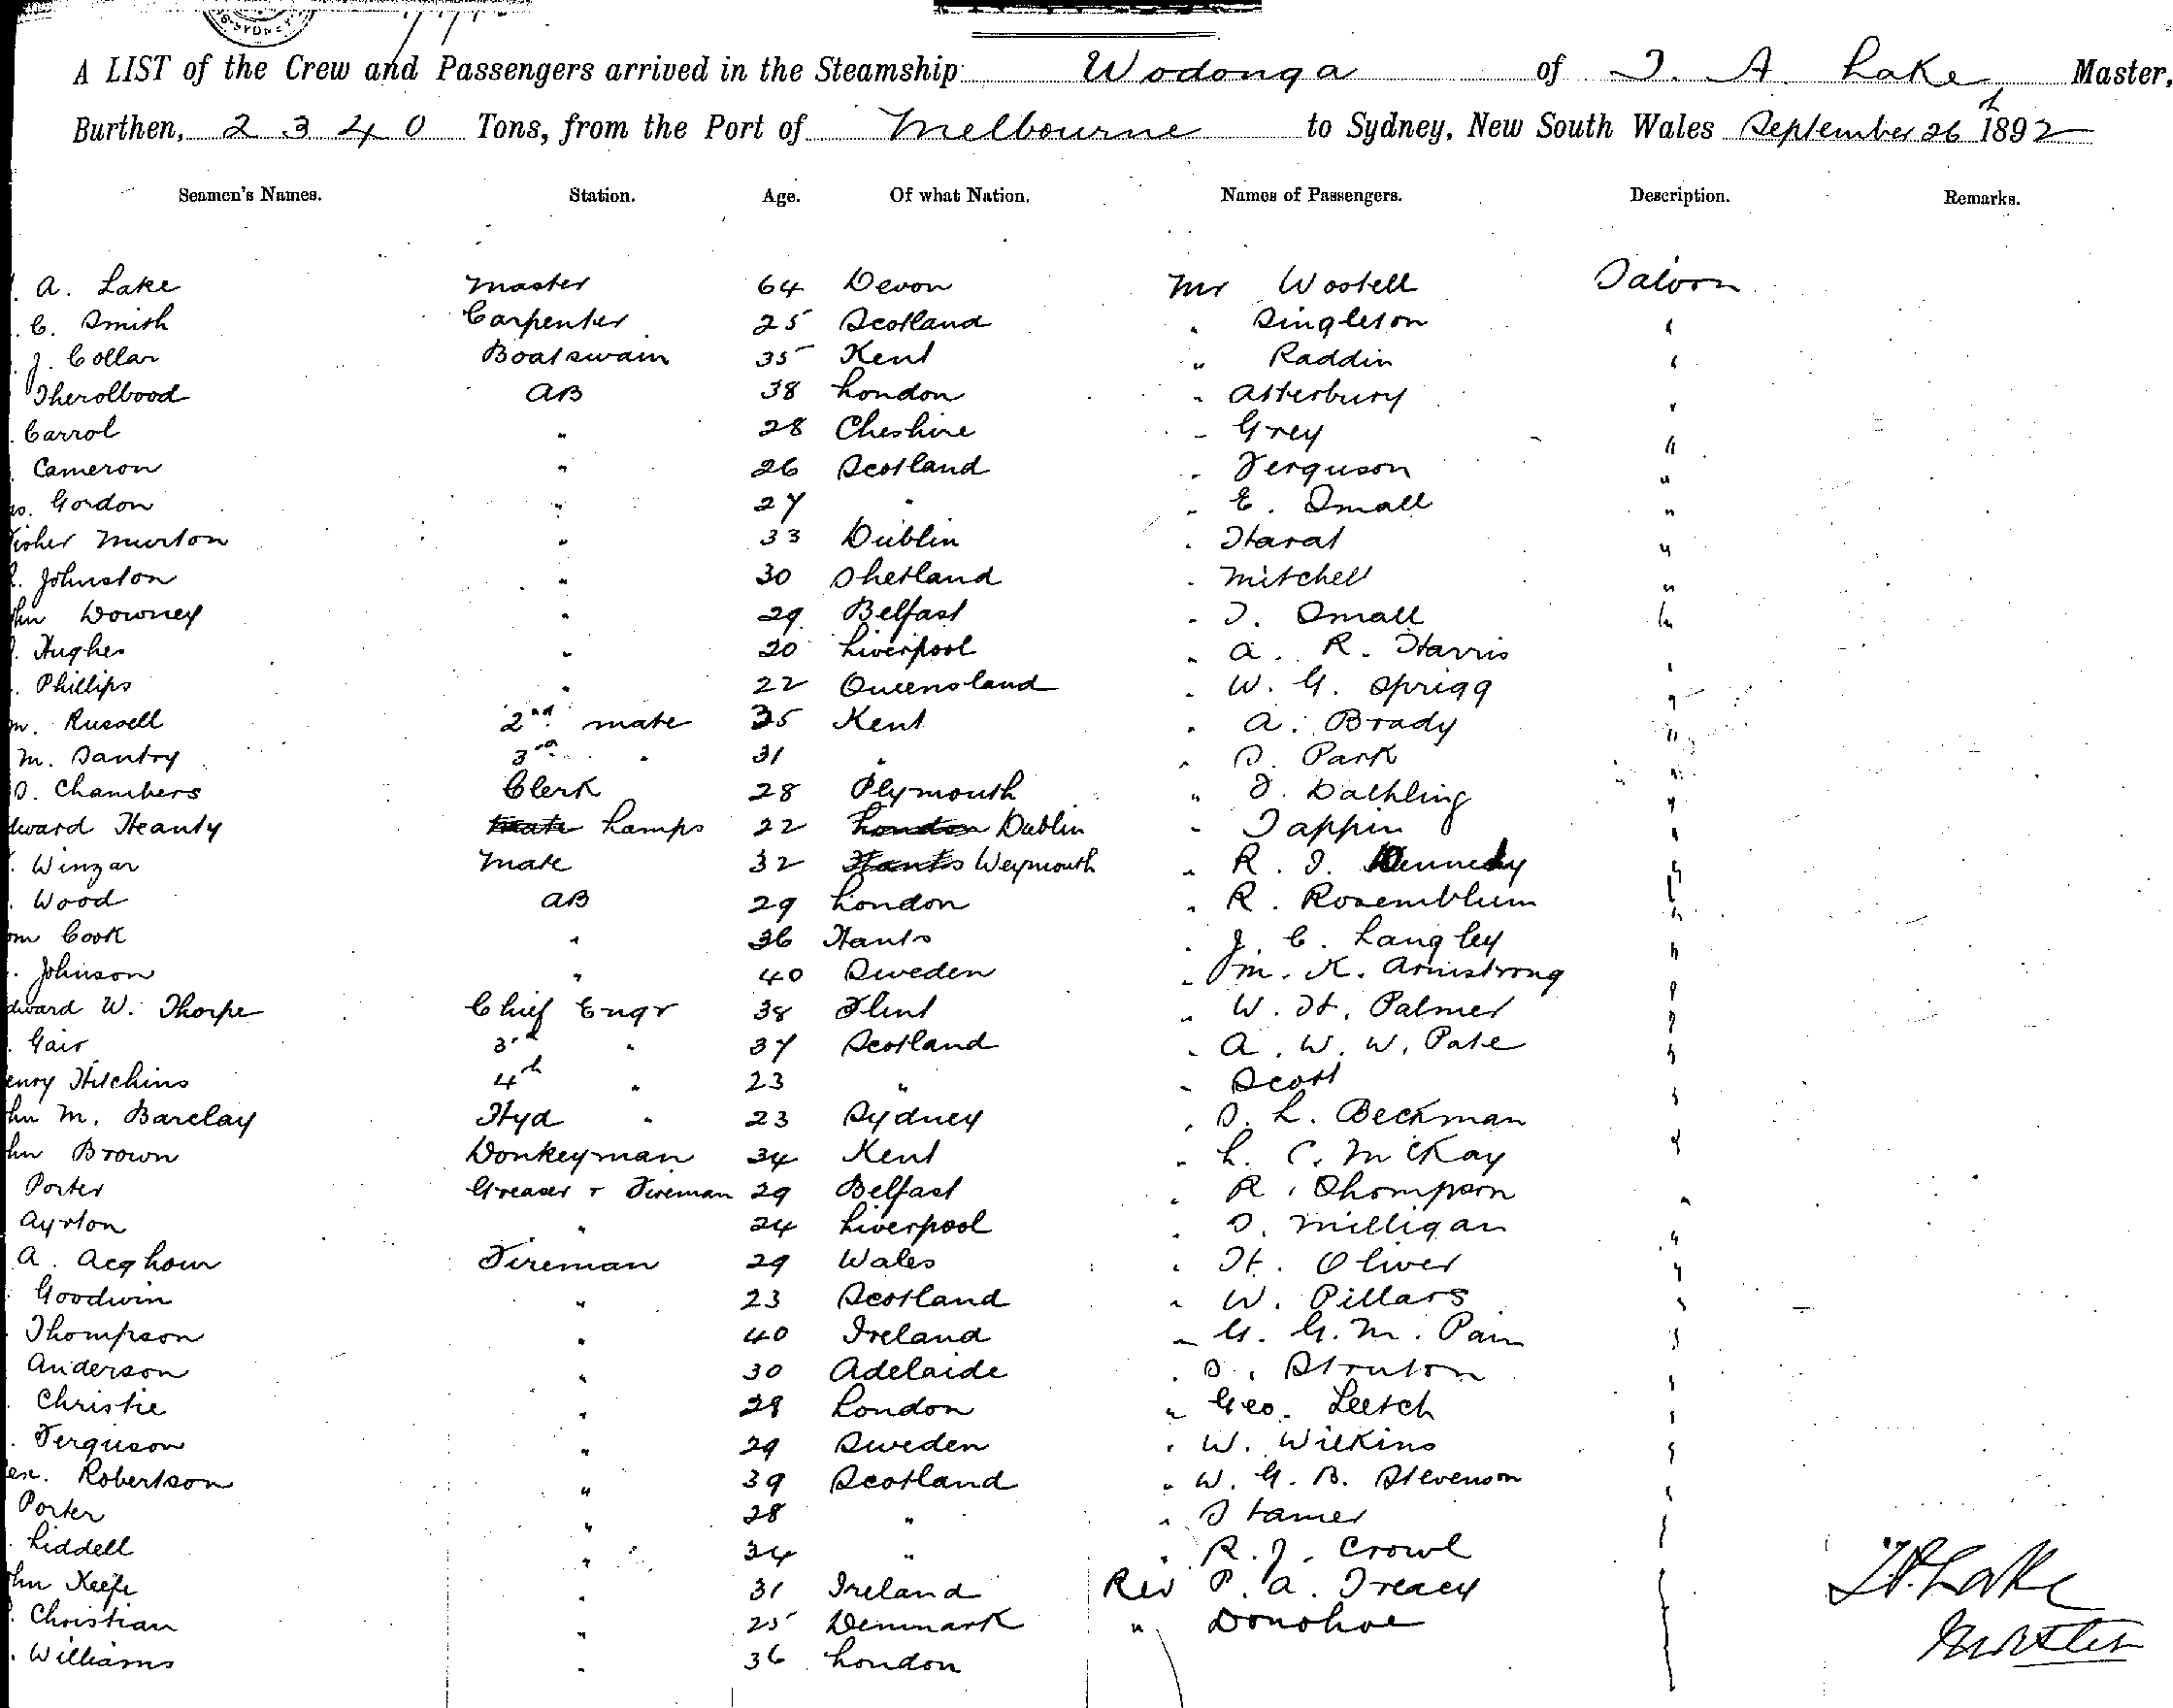 A LIST of the Crew and Passengers arrived in the Steamship Wodonga of T. A. Lake Master,
Burthen, 2340 Tons, from the Port of Melbourne to Sydney, New South Wales September 26th 1892
Seamen's Names. Station. Age. Of what Nation. Names of Passengers. Description. Remarks.
A. Lake Master 64 Devon Mr Wostell Saloon
C. Smith Carpenter 25 Scotland " Singleton "
J. Collar Boatswain 35 Kent " Raddin "
Therolbood AB 38 London " Atterbury "
Carrol " 28 Cheshire " Grey "
Cameron " 26 Scotland " Ferguson "
Gordon " 27 " " E. Small "
Murton " 33 Dublin " Harat "
Johnston " 30 Shetland " Mitchell "
Downey " 29 Belfast " T. Small "
Hughes " 20 Liverpool " A. R. Harris "
Phillips " 22 Queensland " W. G. Sprigg "
Russell 2nd mate 35 Kent " A. Brady "
M. Santry 3rd " 31 " " S. Park "
O. Chambers Clerk 28 Plymouth " F. Dathling "
Heanty Lamps 22 London Dublin " Tappin "
Winzar Mate 32 Hants Weymouth " R. T. Kennedy "
Wood AB 29 London " R. Rosemblum "
Cook " 36 Hants " J. C. Langley "
Johnson " 40 Sweden " M. K. Armstrong "
W. Thorpe Chief Engr 38 Flint " W. H. Palmer "
Gair 3rd " 37 Scotland " A. W. W. Pate "
Hitchins 4th " 23 " " Scott "
M. Barclay Hyd " 23 Sydney " S. L. Beckman "
Brown Donkeyman 34 Kent " L. C. McKay "
Porter Greaser + Fireman 29 Belfast " R. Thompson "
Ayrton " 24 Liverpool " S. Milligan "
A. Acghour Fireman 29 Wales " H. Oliver "
Goodwin " 23 Scotland " W. Pillars "
Thompson " 40 Ireland " G. G. M. Pain "
Anderson " 30 Adelaide " S. Struton "
Christie " 28 London " Geo. Leetch "
Ferguson " 29 Sweden " W. Wilkins "
Robertson " 39 Scotland " W. G. B. Stevenson "
Porter " 28 " " Stamer
Liddell " 34 " " R. J. Crowl
Keefe " 31 Ireland Rev P. A. Treacy
Christian " 25 Denmark " Donohoe
Williams " 36 London
T A Lake
Master